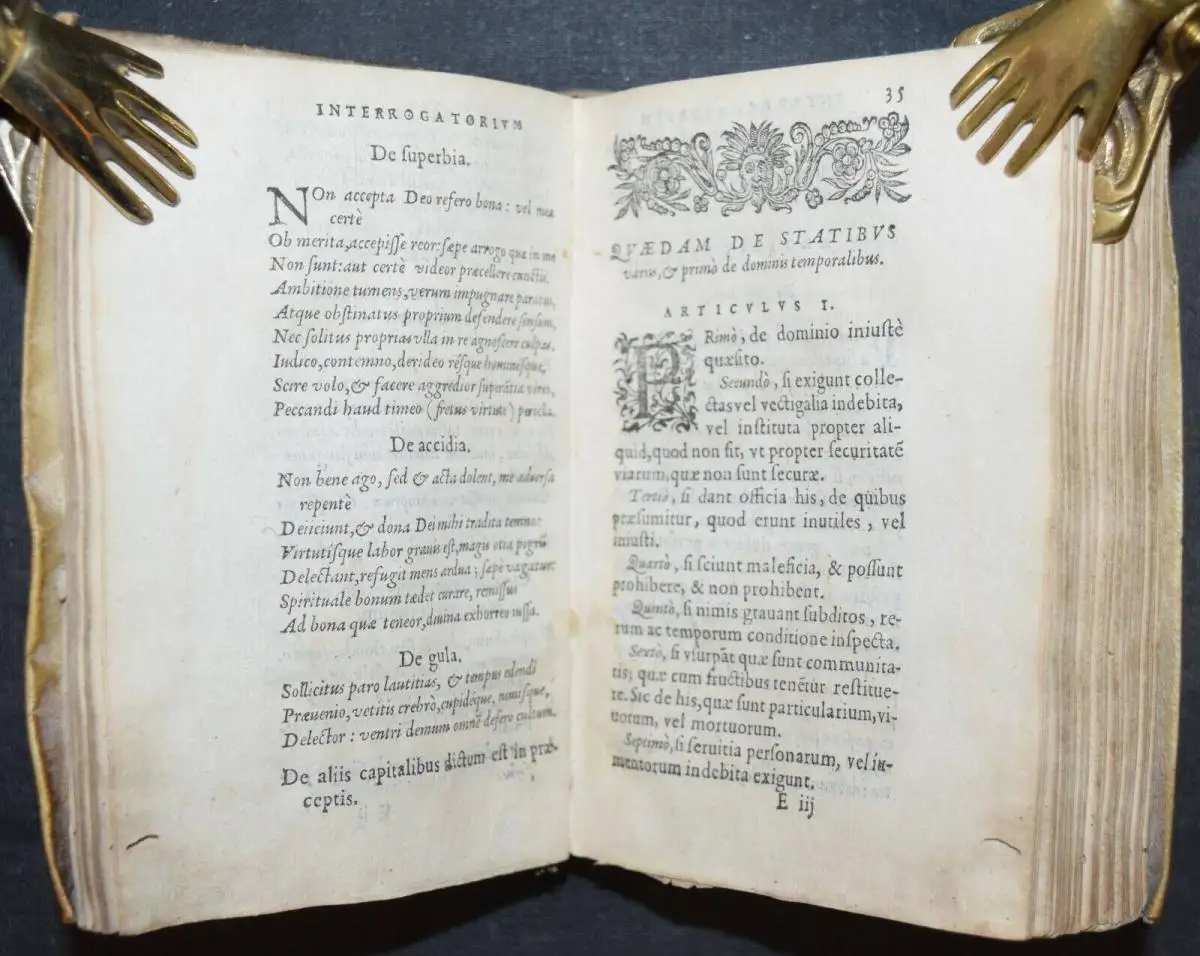 INTERROGATORIVM
De ſuperbia.
NOn accepta Deo refero bona: vel mea
certè
Ob merita, accepiſſe reor: ſæpe arrogo quæ in me
Non ſunt: aut certè videor præcellere cunctis,
Ambitione tumens, verum impugnare paratus,
Atque obſtinatus proprium defendere ſenſum,
Nec ſolitus proprias vlla in re agnoſcere culpas.
Iudico, contemno, derideo réſque hominéſque,
Scire volo, & facere aggredior ſuperãtia vires,
Peccandi haud timeo (fretus virtute) pericla.
De accidia.
Non bene ago, ſed & acta dolent, me aduerſa
repentè
Deiiciunt, & dona Dei mihi tradita temno:
Virtutiſque labor grauis eſt, magis otia pigrũ
Delectant, refugit mens ardua; ſæpè vagatur:
Spirituale bonum tædet curare, remiſſus
Ad bona quæ teneor, diuina exhorreo iuſſa.
De gula.
Sollicitus paro lautitias, & tempus edendi
Præuenio, vetitis crebrò, cupidéque, nimiſque,
Delector: ventri demum omnẽ defero cultum.
De aliis capitalibus dictum eſt in præ-
ceptis.
35
QVÆDAM DE STATIBVS
variis, & primò de dominis temporalibus.
ARTICVLVS I.
PRimò, de dominio iniuſtè
quæſito.
Secundò, ſi exigunt colle-
ctas vel vectigalia indebita,
vel inſtituta propter ali-
quid, quod non fit, vt propter ſecuritatẽ
viarum, quæ non ſunt ſecuræ.
Tertiò, ſi dant officia his, de quibus
præſumitur, quod erunt inutiles, vel
iniuſti.
Quartò, ſi ſciunt maleficia, & poſſunt
prohibere, & non prohibent.
Quintò, ſi nimis grauant ſubditos, re-
rum ac temporum conditione inſpecta.
Sextò, ſi vſurpãt quæ ſunt communita-
tis; quæ cum fructibus tenẽtur reſtitue-
re. Sic de his, quæ ſunt particularium, vi-
uorum, vel mortuorum.
Septimò, ſi ſeruitia perſonarum, vel iu-
mentorum indebita exigunt.
E iij